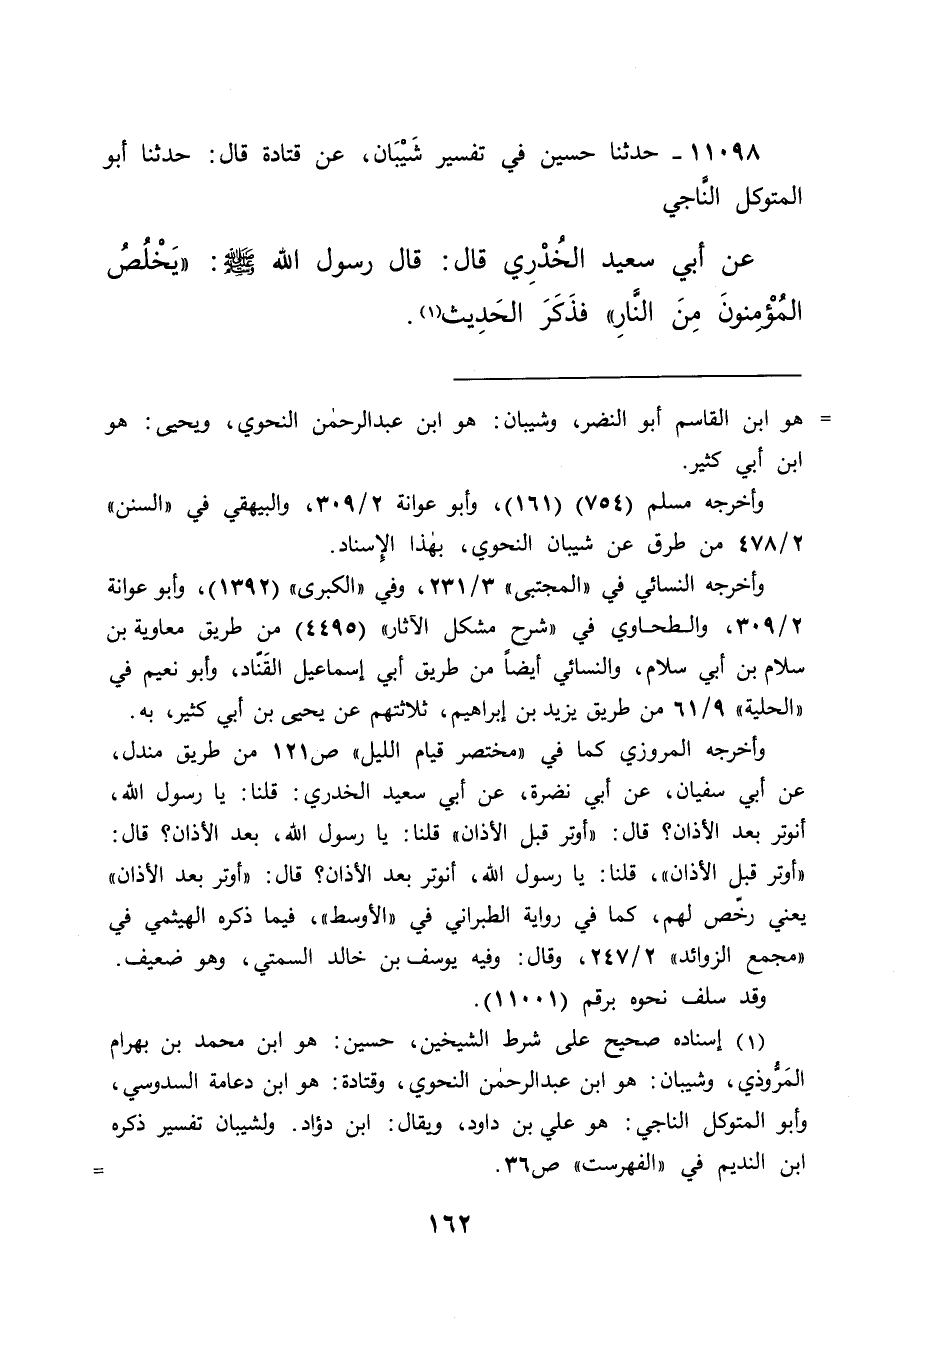 ١١٠٩٨ - حدثنا حسين في تفسير شَيْبَان، عن قتادة قال: حدثنا أبو
المتوكل النَّاجي
عن أبي سعيد الخُدْرِي قال: قال رسول الله ﷺ: «يَخْلُصُ
المُؤْمِنونَ مِنَ النَّارِ» فذَكَرَ الحَدِيث(١).
= هو ابن القاسم أبو النضر، وشيبان: هو ابن عبدالرحمٰن النحوي، ويحيى: هو
ابن أبي كثير.
وأخرجه مسلم (٧٥٤) (١٦١)، وأبو عوانة ٣٠٩/٢، والبيهقي في «السنن»
٤٧٨/٢ من طرق عن شيبان النحوي، بهٰذا الإِسناد.
وأخرجه النسائي في «المجتبى» ٢٣١/٣، وفي «الكبرى» (١٣٩٢)، وأبو عوانة
٣٠٩/٢، والطحاوي في «شرح مشكل الآثار» (٤٤٩٥) من طريق معاوية بن
سلام بن أبي سلام، والنسائي أيضاً من طريق أبي إسماعيل القَنَّاد، وأبو نعيم في
«الحلية» ٦١/٩ من طريق يزيد بن إبراهيم، ثلاثتهم عن يحيى بن أبي كثير، به.
وأخرجه المروزي كما في «مختصر قيام الليل» ص١٢١ من طريق مندل،
عن أبي سفيان، عن أبي نضرة، عن أبي سعيد الخدري: قلنا: يا رسول الله،
أنوتر بعد الأذان؟ قال: «أوتر قبل الأذان» قلنا: يا رسول الله، بعد الأذان؟ قال:
«أوتر قبل الأذان»، قلنا: يا رسول الله، أنوتر بعد الأذان؟ قال: «أوتر بعد الأذان»
يعني رخّص لهم، كما في رواية الطبراني في «الأوسط»، فيما ذكره الهيثمي في
«مجمع الزوائد» ٢٤٧/٢، وقال: وفيه يوسف بن خالد السمتي، وهو ضعيف.
وقد سلف نحوه برقم (١١٠٠١).
(١) إسناده صحيح على شرط الشيخين، حسين: هو ابن محمد بن بهرام
المَرُّوذي، وشيبان: هو ابن عبدالرحمٰن النحوي، وقتادة: هو ابن دعامة السدوسي،
وأبو المتوكل الناجي: هو علي بن داود، ويقال: ابن دؤاد. ولشيبان تفسير ذكره
ابن النديم في «الفهرست» ص٣٦. =
١٦٢